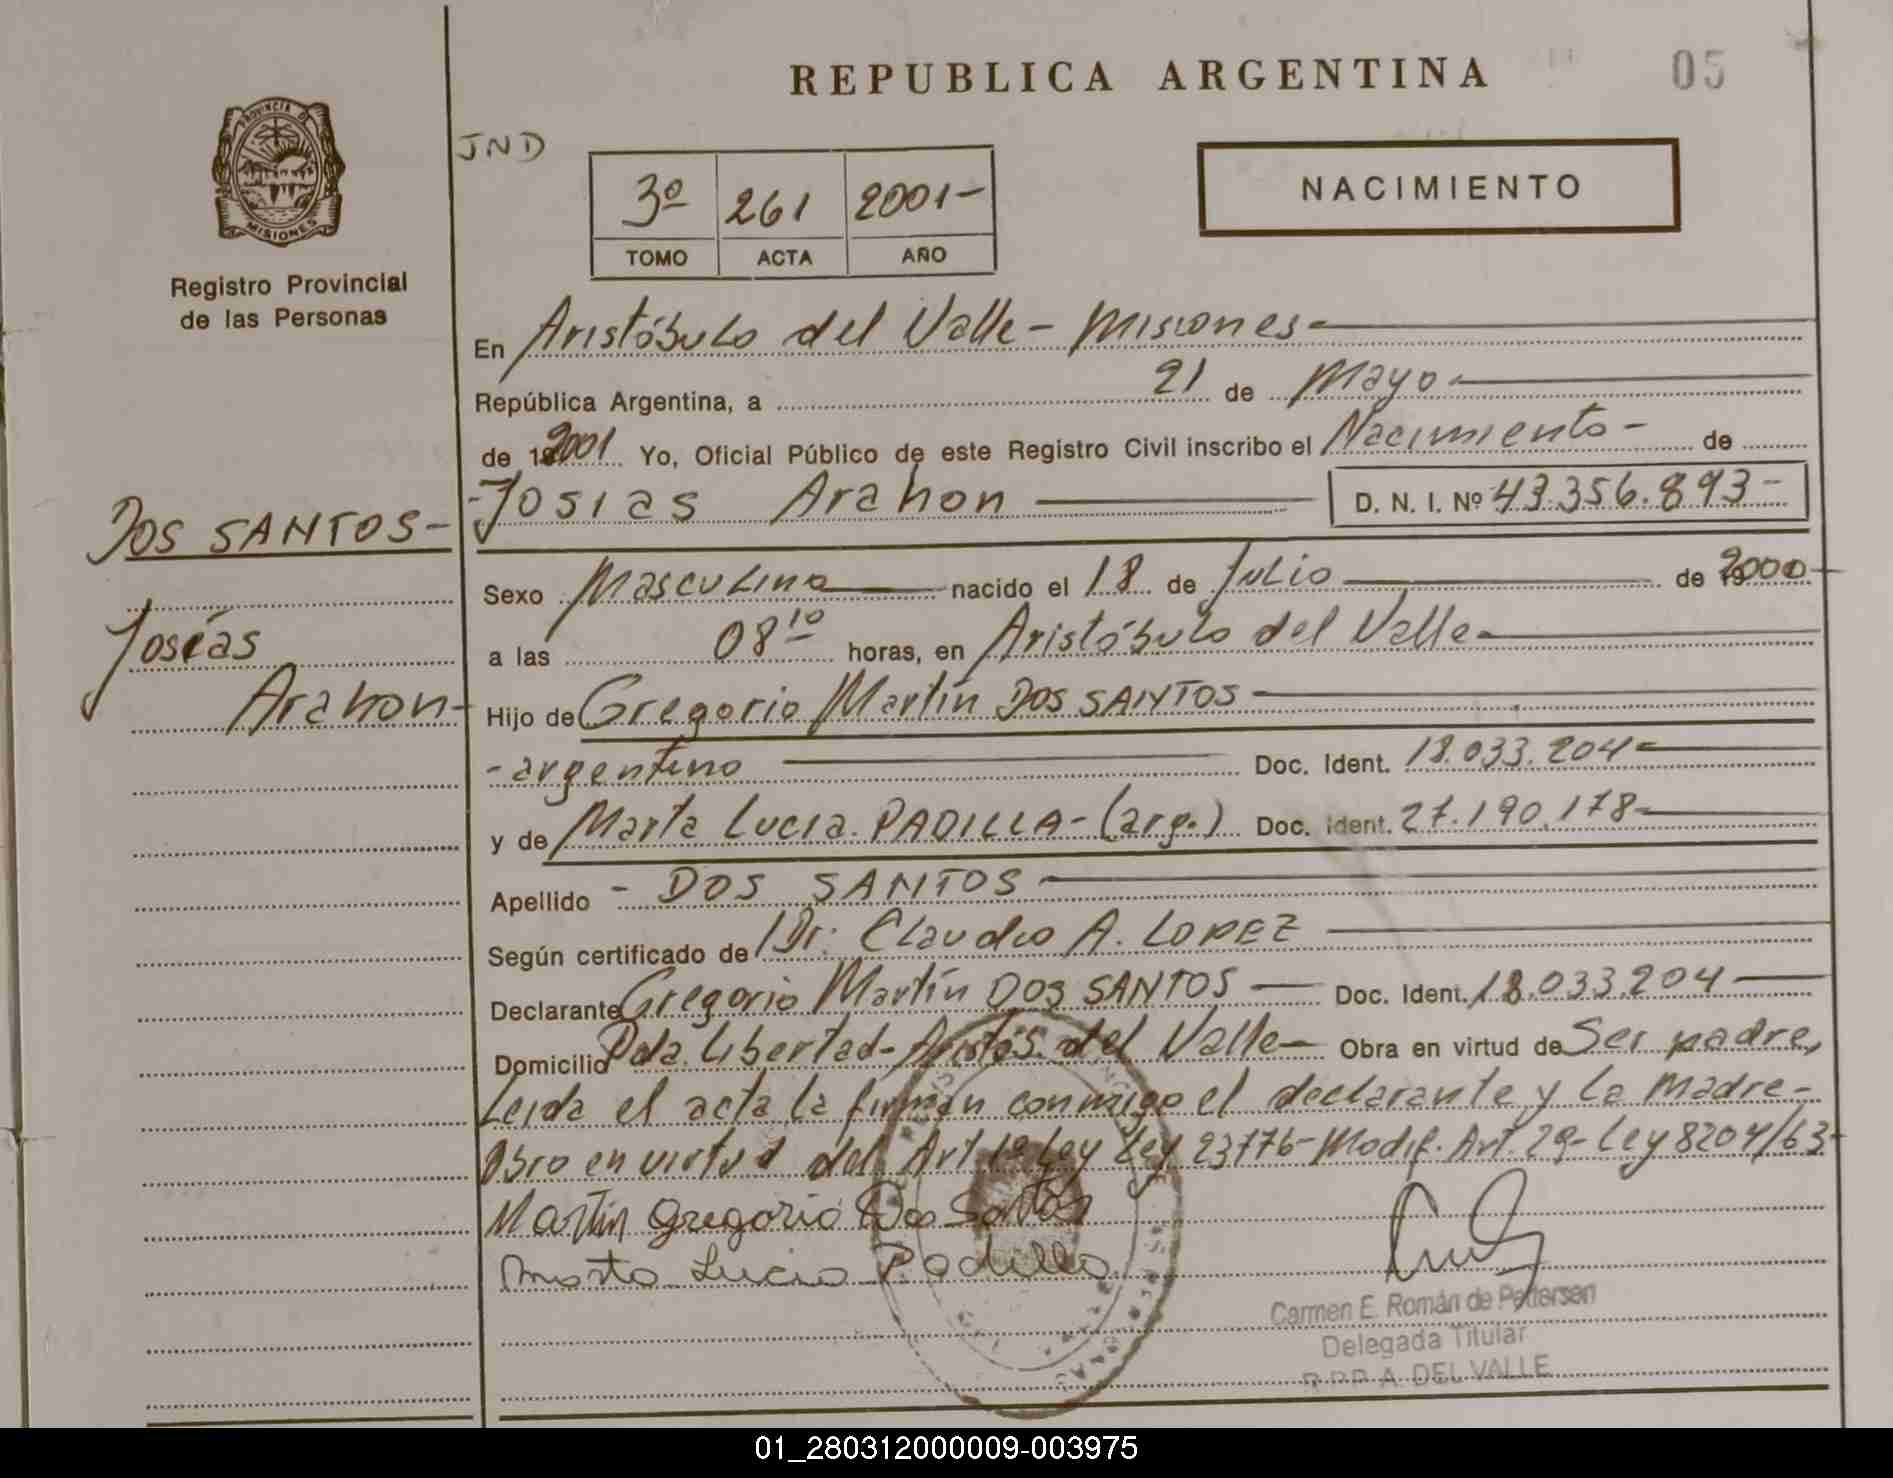 REPUBLICA ARGENTINA
05
PROVINCIA DE
MISIONES
Registro Provincial
de las Personas
JND
3º 261 2001-
TOMO ACTA AÑO
NACIMIENTO
En Aristóbulo del Valle - Misiones-
República Argentina, a 21 de Mayo-
de 2001 Yo, Oficial Público de este Registro Civil inscribo el Nacimiento- de
-Josias Arahon D. N. I. Nº 43.356.893-
DOS SANTOS-
Josías
Arahon-
Sexo Masculino nacido el 18 de Julio de 2000-
a las 08 10 horas, en Aristóbulo del Valle-
Hijo de Gregorio Martín DOS SANTOS-
-argentino Doc. Ident. 18.033.204-
y de Marta Lucia PADILLA- (arg.) Doc. Ident. 27.190.178-
Apellido - DOS SANTOS
Según certificado de Dr: Claudio A. LOPEZ
Declarante Gregorio Martín DOS SANTOS - Doc. Ident. 18.033.204
Domicilio Pda. Libertad- Aristób. del Valle- Obra en virtud de Ser padre,
Leida el acta la firman conmigo el declarante y la madre-
Obro en virtud del Art 1º Ley Ley 23776- Modif. Art. 29- Ley 8204/63-
Martín Gregorio Dos Santos
Marta Lucia Padilla
Carmen E. Román de Pettersen
Delegada Titular
R.P.P. A. DEL VALLE
01_280312000009-003975